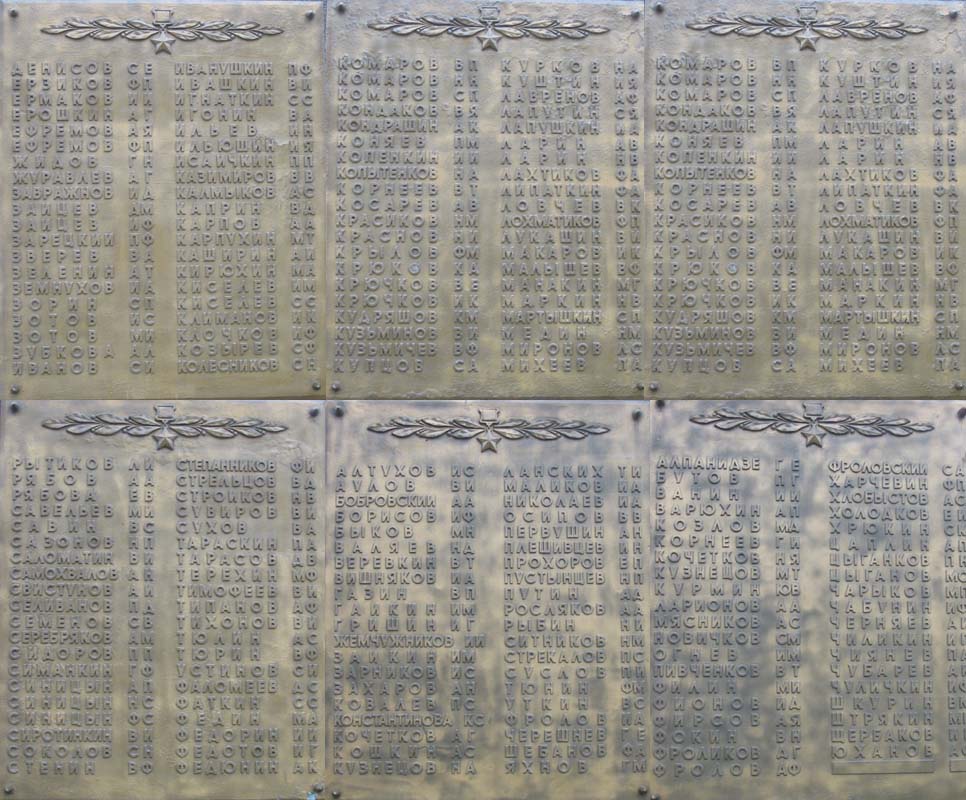 ДЕНИСОВ СЕ ИВАНУШКИН ПФ
ЕРЗИКОВ ФП ИВАШКИН ВИ
ЕРМАКОВ ИИ ИГНАТКИН СС
ЕРОШКИН АГ ИГОНИН ВА
ЕФРЕМОВ АЯ ИЛЬЕВ ИН
ЕФРЕМОВ ФП ИЛЬЮШИН ИЯ
ЖИДОВ ГН ИСАИЧКИН ПП
ЖУРАВЛЕВ АГ КАЗИМИРОВ ВВ
ЗАВРАЖНОВ ИД КАЛМЫКОВ АС
ЗАЙЦЕВ ДМ КАПРИН ВД
ЗАЙЦЕВ ИФ КАРПОВ АА
ЗАРЕЦКИЙ ПФ КАРПУХИН МТ
ЗВЕРЕВ ВА КАШИРИН АИ
ЗЕЛЕНИН АТ КИРЮХИН МА
ЗЕМНУХОВ ИА КИСЕЛЕВ ИМ
ЗОРИН СП КИСЕЛЕВ СС
ЗОТОВ ИС КЛИМАНОВ ИК
ЗОТОВ МИ КЛОЧКОВ ИФ
ЗУБКОВА АЛ КОЗЫРЕВ СФ
ИВАНОВ СИ КОЛЕСНИКОВ СН
КОМАРОВ ВП КУРКОВ НА
КОМАРОВ НН КУШТИН ИЯ
КОМАРОВ СП ЛАВРЕНОВ АФ
КОНДАКОВ ВЯ ЛАПУТИН СЯ
КОНДРАШИН АК ЛАПУШКИН ИА
КОНЯЕВ ПМ ЛАРИН АВ
КОПЕНКИН ИИ ЛАРИН НВ
КОПЫТЕНКОВ НА ЛАХТИКОВ ФА
КОРНЕЕВ ВТ ЛИПАТКИН ФА
КОСАРЕВ АВ ЛОВЧЕВ ВК
КРАСИКОВ НМ ЛОХМАТИКОВ ФП
КРАСНОВ НИ ЛУКАШИН ВИ
КРЫЛОВ ФМ МАКАРОВ ИК
КРЮКОВ КА МАЛЫШЕВ ВФ
КРЮЧКОВ ВЕ МАНАКИН МГ
КРЮЧКОВ ИК МАРКИН НВ
КУДРЯШОВ КМ МАРТЫШКИН СП
КУЗЬМИНОВ ВИ МЕДИН НМ
КУЗЬМИЧЕВ ВФ МИРОНОВ ЛС
КУПЦОВ СА МИХЕЕВ ПА
КОМАРОВ ВП КУРКОВ НА
КОМАРОВ НН КУШТИН ИЯ
КОМАРОВ СП ЛАВРЕНОВ АФ
КОНДАКОВ ВЯ ЛАПУТИН СЯ
КОНДРАШИН АК ЛАПУШКИН ИА
КОНЯЕВ ПМ ЛАРИН АВ
КОПЕНКИН ИИ ЛАРИН НВ
КОПЫТЕНКОВ НА ЛАХТИКОВ ФА
КОРНЕЕВ ВТ ЛИПАТКИН ФА
КОСАРЕВ АВ ЛОВЧЕВ ВК
КРАСИКОВ НМ ЛОХМАТИКОВ ФП
КРАСНОВ НИ ЛУКАШИН ВИ
КРЫЛОВ ФМ МАКАРОВ ИК
КРЮКОВ КА МАЛЫШЕВ ВФ
КРЮЧКОВ ВЕ МАНАКИН МГ
КРЮЧКОВ ИК МАРКИН НВ
КУДРЯШОВ КМ МАРТЫШКИН СП
КУЗЬМИНОВ ВИ МЕДИН НМ
КУЗЬМИЧЕВ ВФ МИРОНОВ ЛС
КУПЦОВ СА МИХЕЕВ ПА
РЫТИКОВ ЛИ СТЕПАННИКОВ ФИ
РЯБОВ АА СТРЕЛЬЦОВ ВД
РЯБОВА ЕВ СТРОЙКОВ НВ
САВЕЛЬЕВ МИ СУВИРОВ ВИ
САВИН ВС СУХОВ ВА
САЗОНОВ НП ТАРАСКИН ПА
САЛОМАТИН ВИ ТАРАСОВ ДВ
САМОХВАЛОВ АН ТЕРЕХИН МФ
СВИСТУНОВ АИ ТИМОФЕЕВ ВИ
СЕЛИВАНОВ ПД ТИПАНОВ АФ
СЕМЕНОВ СВ ТИХОНОВ ВИ
СЕРЕБРЯКОВ АМ ТЮЛИН АС
СИДОРОВ ПП ТЮРИН ВФ
СИМАНКИН ГФ УСТИНОВ СИ
СИНИЦЫН АП ФАЛОМЕЕВ ДС
СИНИЦЫН НС ФАТКИН СС
СИНИЦЫН ФС ФЕДИН МА
СИРОТИНКИН ВИ ФЕДОРИН ИИ
СОКОЛОВ СН ФЕДОТОВ ИГ
СТЕНИН ВФ ФЕДЮНИН АК
АЛТУХОВ ИС ЛАНСКИХ ТИ
АУЛОВ ВИ МАЛИКОВ ИА
БОБРОВСКИЙ АА НИКОЛАЕВ ИА
БОРИСОВ ИФ ОСИПОВ ВВ
БЫКОВ МН ПЕРВУШИН АН
ВАЛЯЕВ НД ПЛЕШИВЦЕВ ИН
ВЕРЕВКИН ВТ ПРОХОРОВ ЕП
ВИШНЯКОВ ИА ПУСТЫНЦЕВ НП
ГАЗИН ВП ПУТИН АД
ГАЙКИН ИМ РОСЛЯКОВ АА
ГРИШИН ИГ РЫБИН НИ
ЖЕМЧУЖНИКОВ ИИ СИТНИКОВ НМ
ЗАИКИН ИМ СТРЕКАЛОВ ПС
ЗАРНИКОВ ИС СУСЛОВ ПИ
ЗАХАРОВ АН ТЮНИН ФМ
КОВАЛЕВ ПС УТКИН ВС
КОНСТАНТИНОВА КС ФРОЛОВ ИА
КОЧЕТКОВ АГ ЧЕРЕШНЕВ ГЕ
КОШКИН АС ШЕБАНОВ ФА
КУЗНЕЦОВ НА ЯХНОВ ГМ
АЛПАНИДЗЕ ГЕ ФРОЛОВСКИЙ СА
БУТОВ ПГ ХАРЧЕВИН ФП
ВАНИН ИИ ХЛОБЫСТОВ АС
ВАРЮХИН АП ХОЛОДКОВ
КОЗЛОВ МД ХРЮКИН
КОРНЕЕВ ГИ ЦАПЛИН
КОЧЕТКОВ НЯ ЦЫГАНКОВ
КУЗНЕЦОВ МТ ЦЫГАНОВ
КУРМИН ЮВ ЧАРЫКОВ
ЛАРИОНОВ АА ЧАБУНИН
МЯСНИКОВ АС ЧЕРНЯЕВ
НОВИЧКОВ СМ ЧИЛИКИН
ОГНЕВ ИМ ЧИЯНЕВ
ПИВЧЕНКОВ ВТ ЧУБАРЕВ
ФИЛИН МИ ЧУЛИЧКИН
ФИОНОВ ИД ШКУРИН
ФИРСОВ АЯ ШТРЯКИН
ФОКИН ВН ЩЕРБАКОВ
ФРОЛИКОВ АГ ЮХАНОВ
ФРОЛОВ АФ